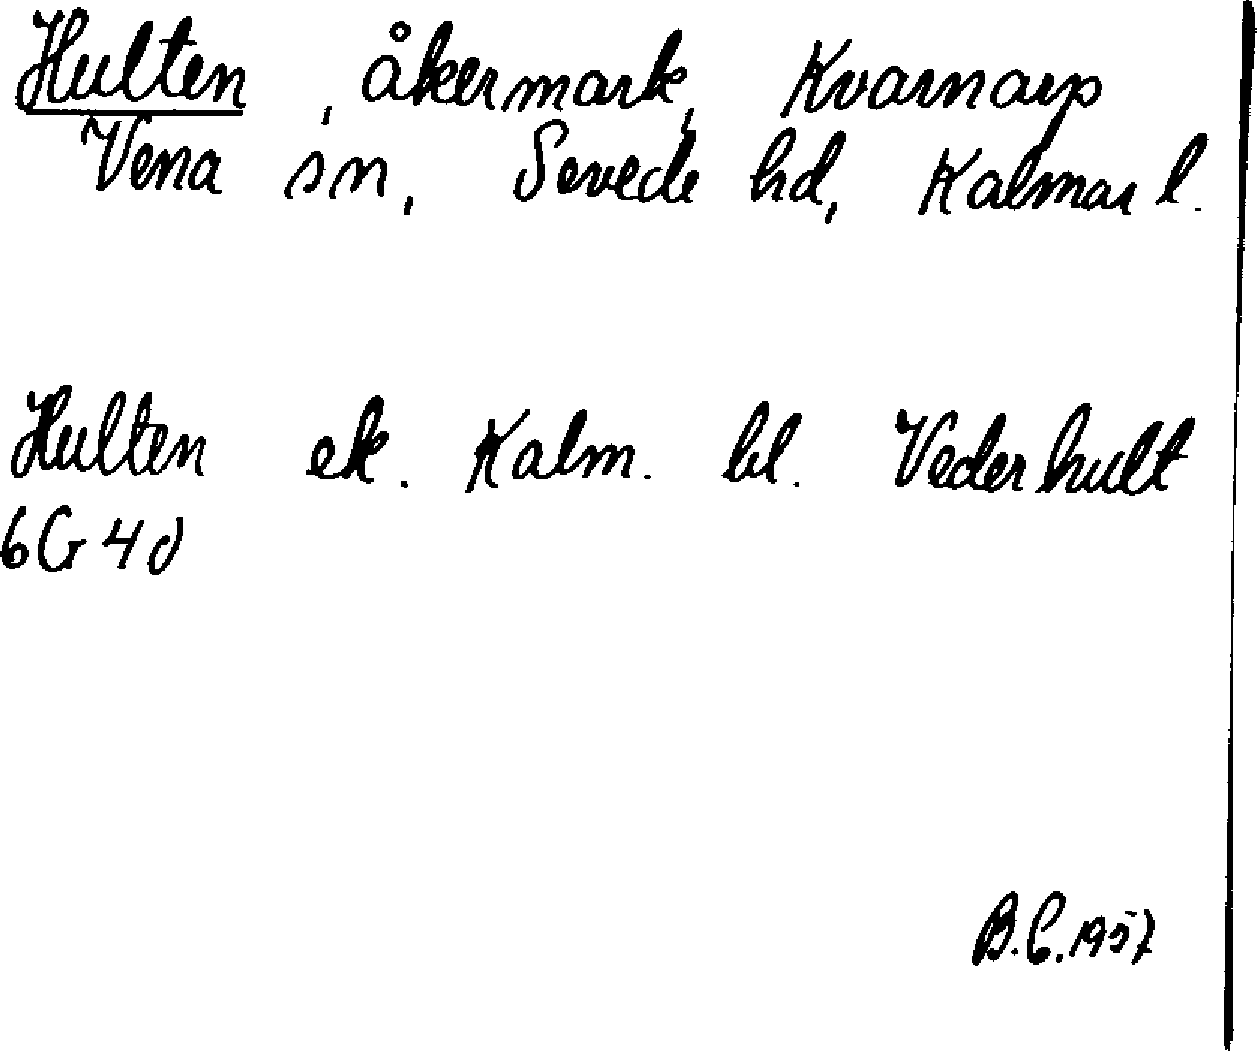 Hulten, åkermark, Kvarnarp
Vena sn, Sevede hd, Kalmar l.
Hulten ek. Kalm. bl. Vederhult
6G 4d
B.C. 1957